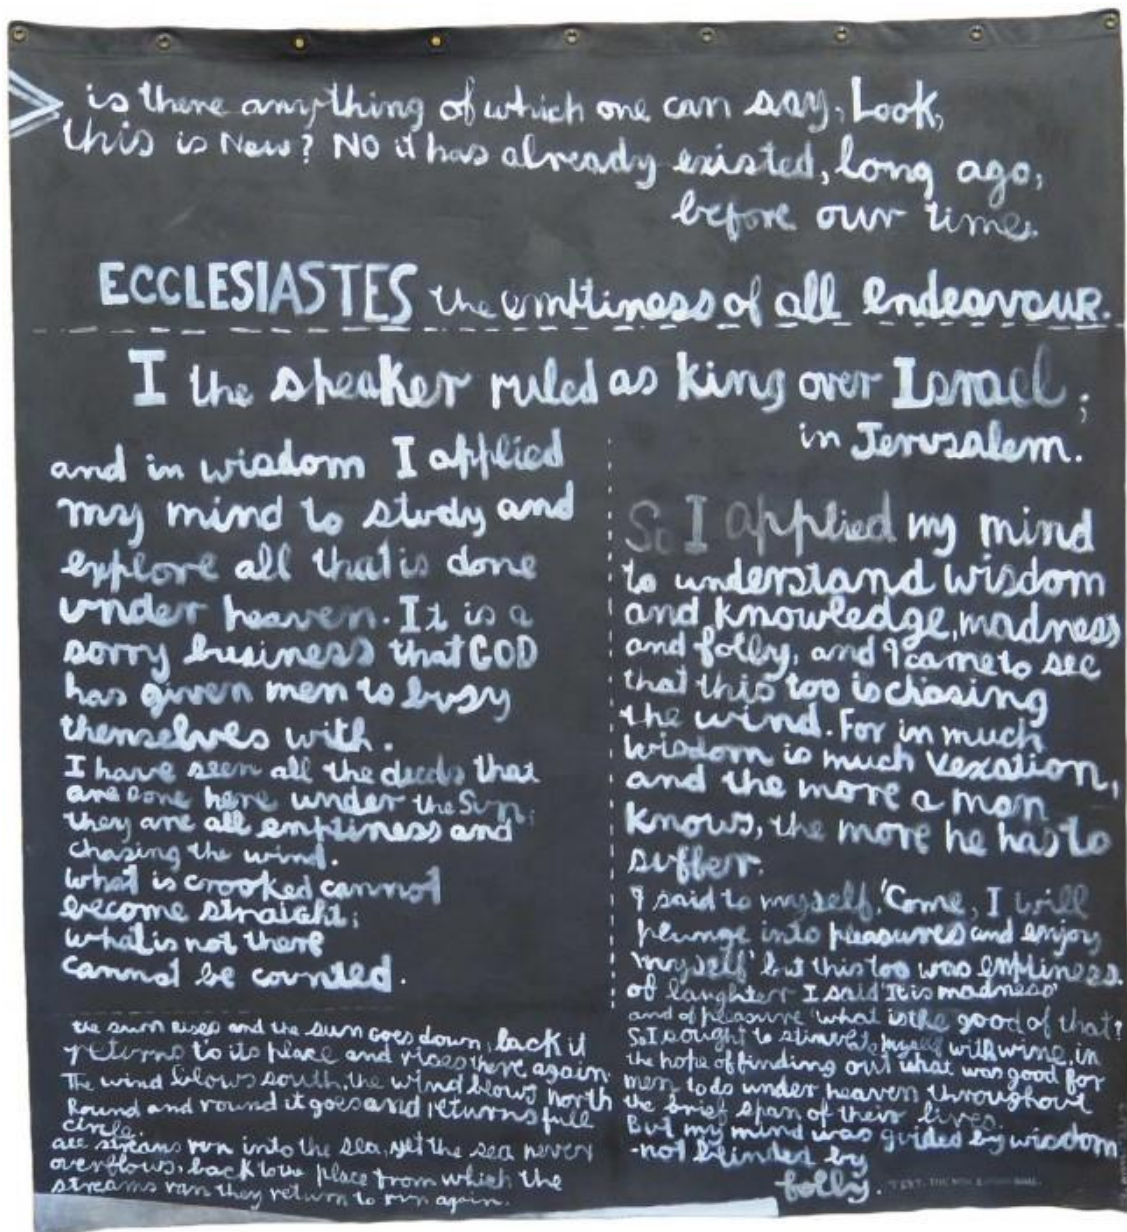 is there anything of which one can say, Look,
this is New? NO it has already existed, long ago,
before our time.
ECCLESIASTES the emptiness of all endeavour.
I the speaker ruled as king over Israel;
in Jerusalem.
and in wisdom I applied
my mind to study and
explore all that is done
under heaven. It is a
sorry business that GOD
has given men to busy
themselves with.
I have seen all the deeds that
are Done here under the Sun;
they are all emptiness and
chasing the wind.
What is crooked cannot
become straight;
what is not there
cannot be counted.
the sun rises and the sun goes down, back it
returns to its place and rises there again.
The wind blows south, the wind blows north
Round and round it goes and returns full
circle.
all streams run into the sea, yet the sea never
overflows, back to the place from which the
streams ran they return to run again.
So I applied my mind
to understand wisdom
and knowledge, madness
and folly, and I came to see
that this too is chasing
the wind. For in much
wisdom is much vexation,
and the more a man
knows, the more he has to
suffer.
I said to myself, 'Come, I will
plunge into pleasures and enjoy
myself' but this too was emptiness.
of laughter I said 'It is madness'
and of pleasure 'what is the good of that?
So I sought to stimulate myself with wine, in
the hope of finding out what was good for
men to do under heaven throughout
the brief span of their lives.
But my mind was guided by wisdom
-not blinded by
folly.
TEXT. THE NEW ENGLISH BIBLE.